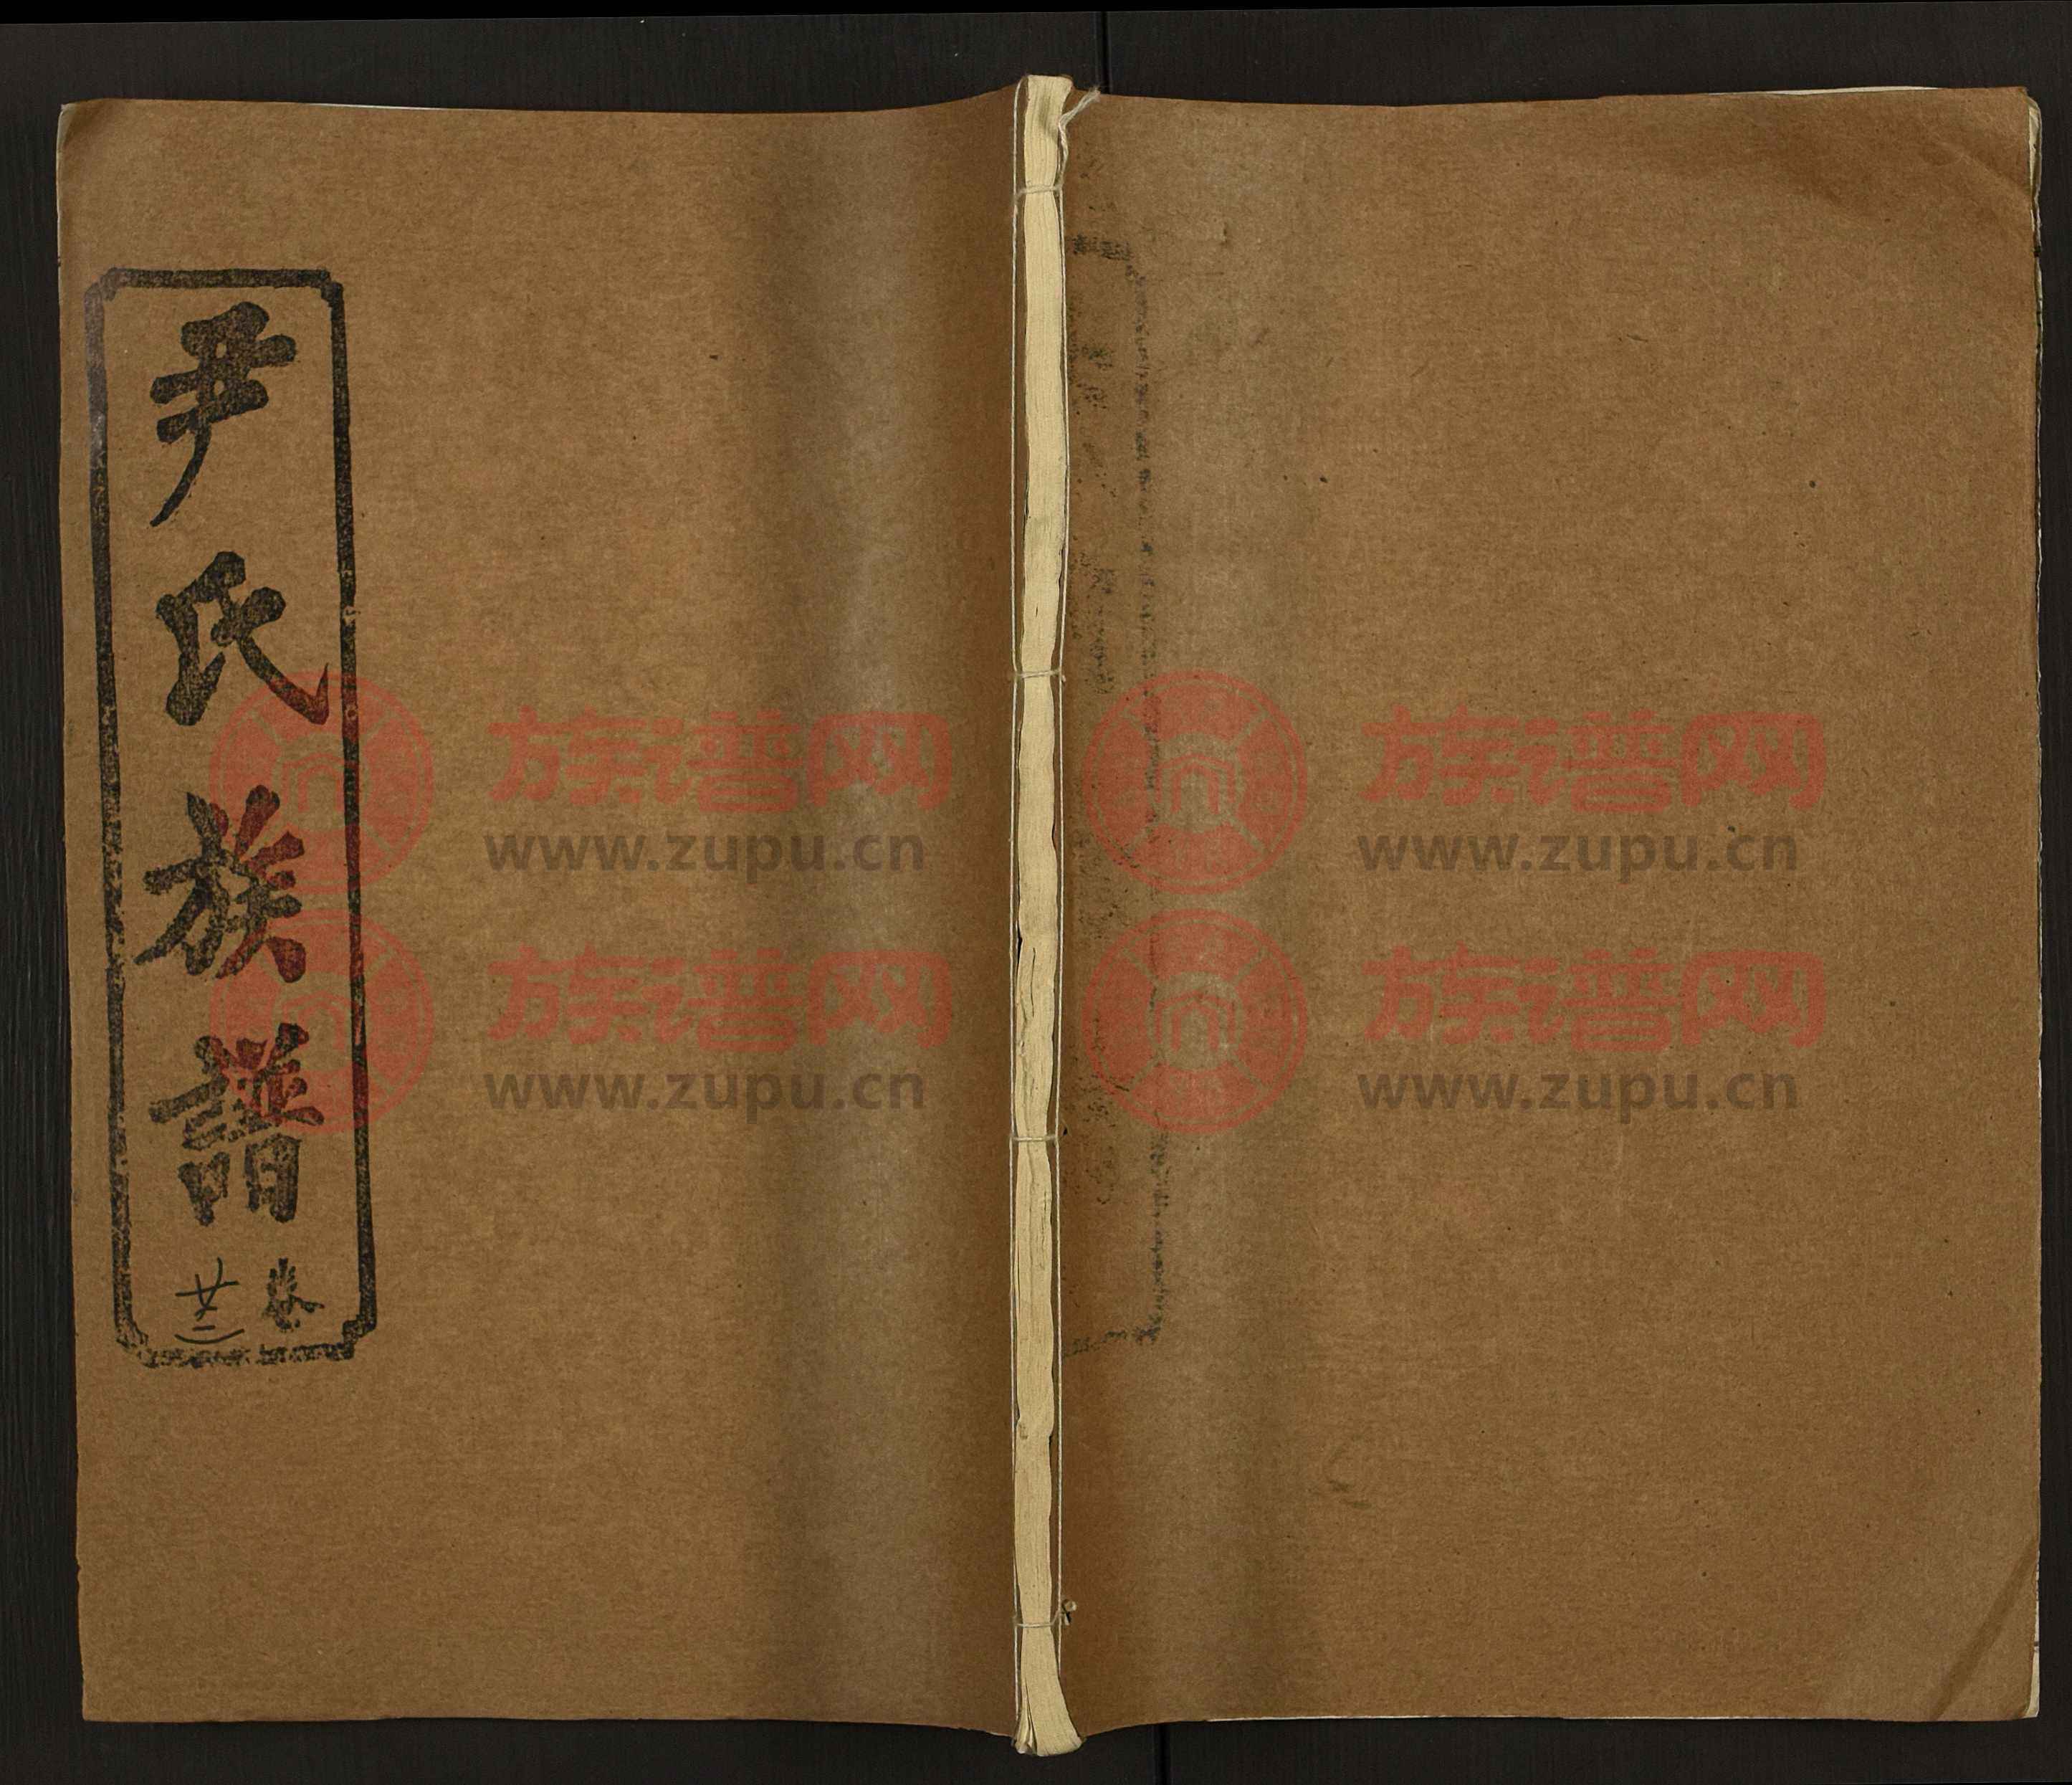 尹氏族譜
卷
族谱网
www.zupu.cn
族谱网
www.zupu.cn
族谱网
www.zupu.cn
族谱网
www.zupu.cn